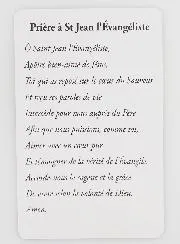 Prière à St Jean l'Évangéliste
Ô Saint Jean l'Évangéliste,
Apôtre bien-aimé de Jésus,
Toi qui as reposé sur le cœur du Sauveur
Et reçu ses paroles de vie
Intercède pour nous auprès du Père
Afin que nous puissions, comme toi,
Aimer avec un cœur pur
Et témoigner de la vérité de l'évangile.
Accorde-nous la sagesse et la grâce
De vivre selon la volonté de Dieu.
Amen.